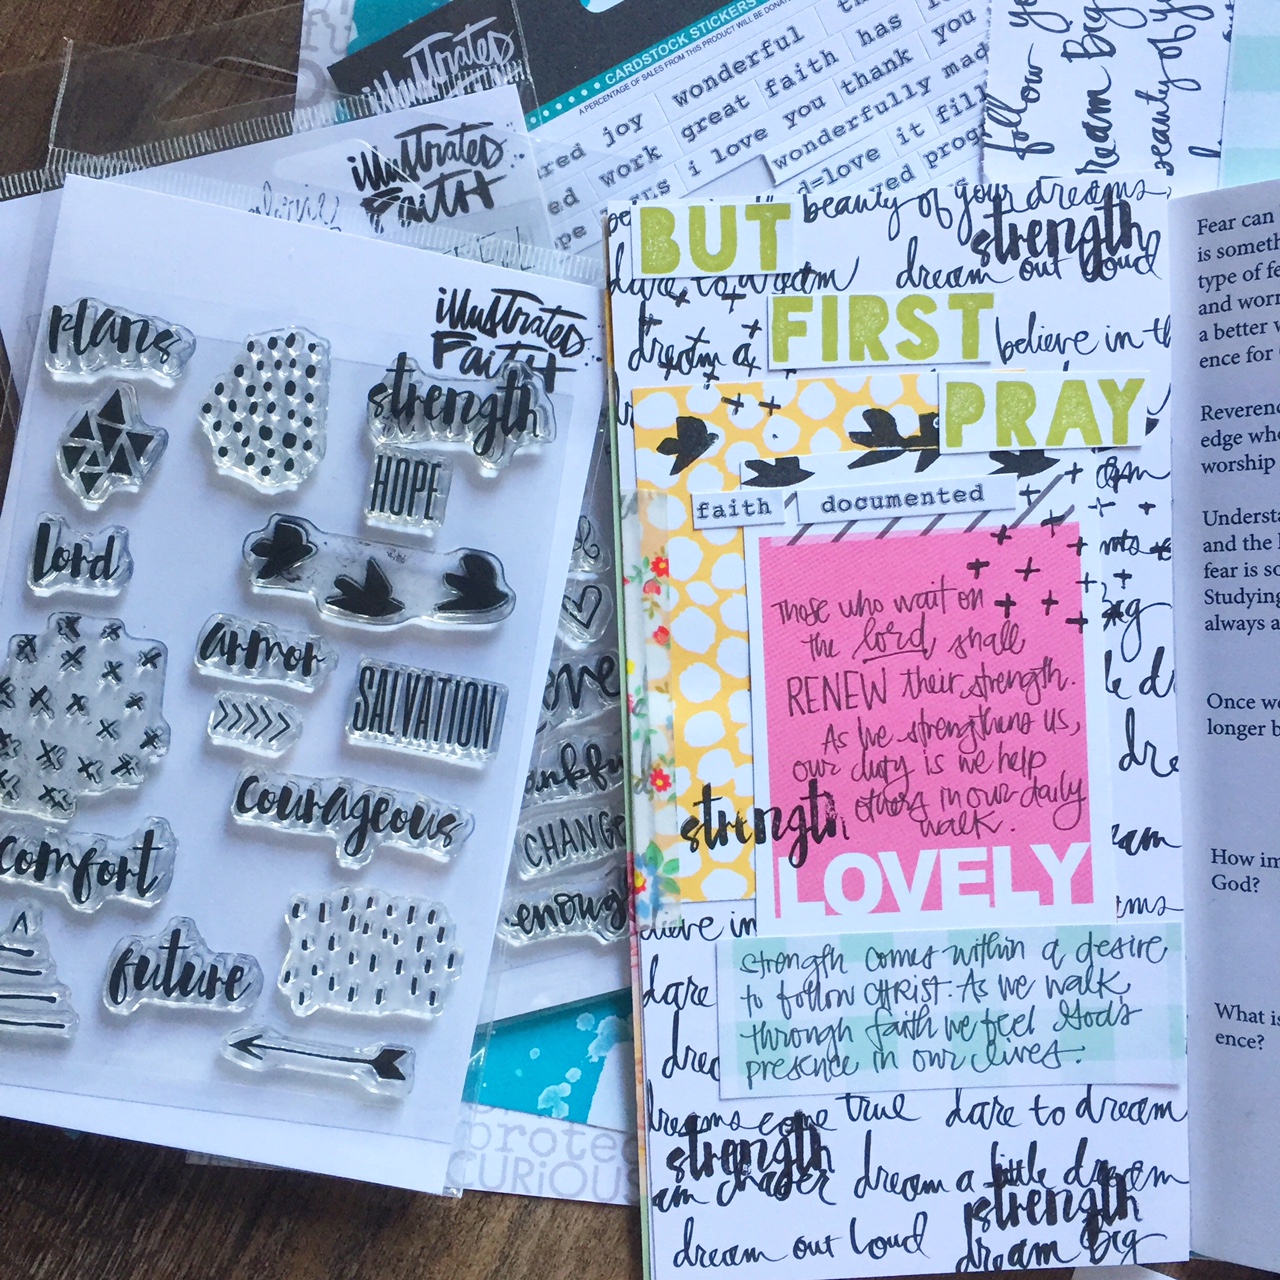 illustrated
CARDSTOCK STICKERS
A PERCENTAGE OF SALES FROM THIS PRODUCT WILL BE DONA
joy wonderful
work great faith has
i love you thank you
wonderfully mad
d=love it fill
illustrated
FAITH
illustrated
FAITH
plans
strength
HOPE
lord
armor
SALVATION
courageous
comfort
future
CHANGE
enoug
protec
CURiOUS
follow yo
dream Big
beauty of yo
BUT
beauty of your dreams,
strength
dare to dream dream out loud
FIRST
believe in th
PRAY
faith documented
Those who wait on
the lord shall
RENEW their strength.
As he strengthens us,
our duty is we help
others in our daily
walk.
strength
LOVELY
believe in
strength comes within a desire
to follow CHRIST. As we walk
through faith we feel God's
presence in our lives.
dare
dreams come true dare to dream
strength
dream a little dream
strength
dream out loud dream Big
Fear can
is someth
type of fe
and worr
a better w
ence for
Reverenc
edge whe
worship
Understa
and the l
fear is so
Studying
always a
Once we
longer b
How im
God?
What is
ence?